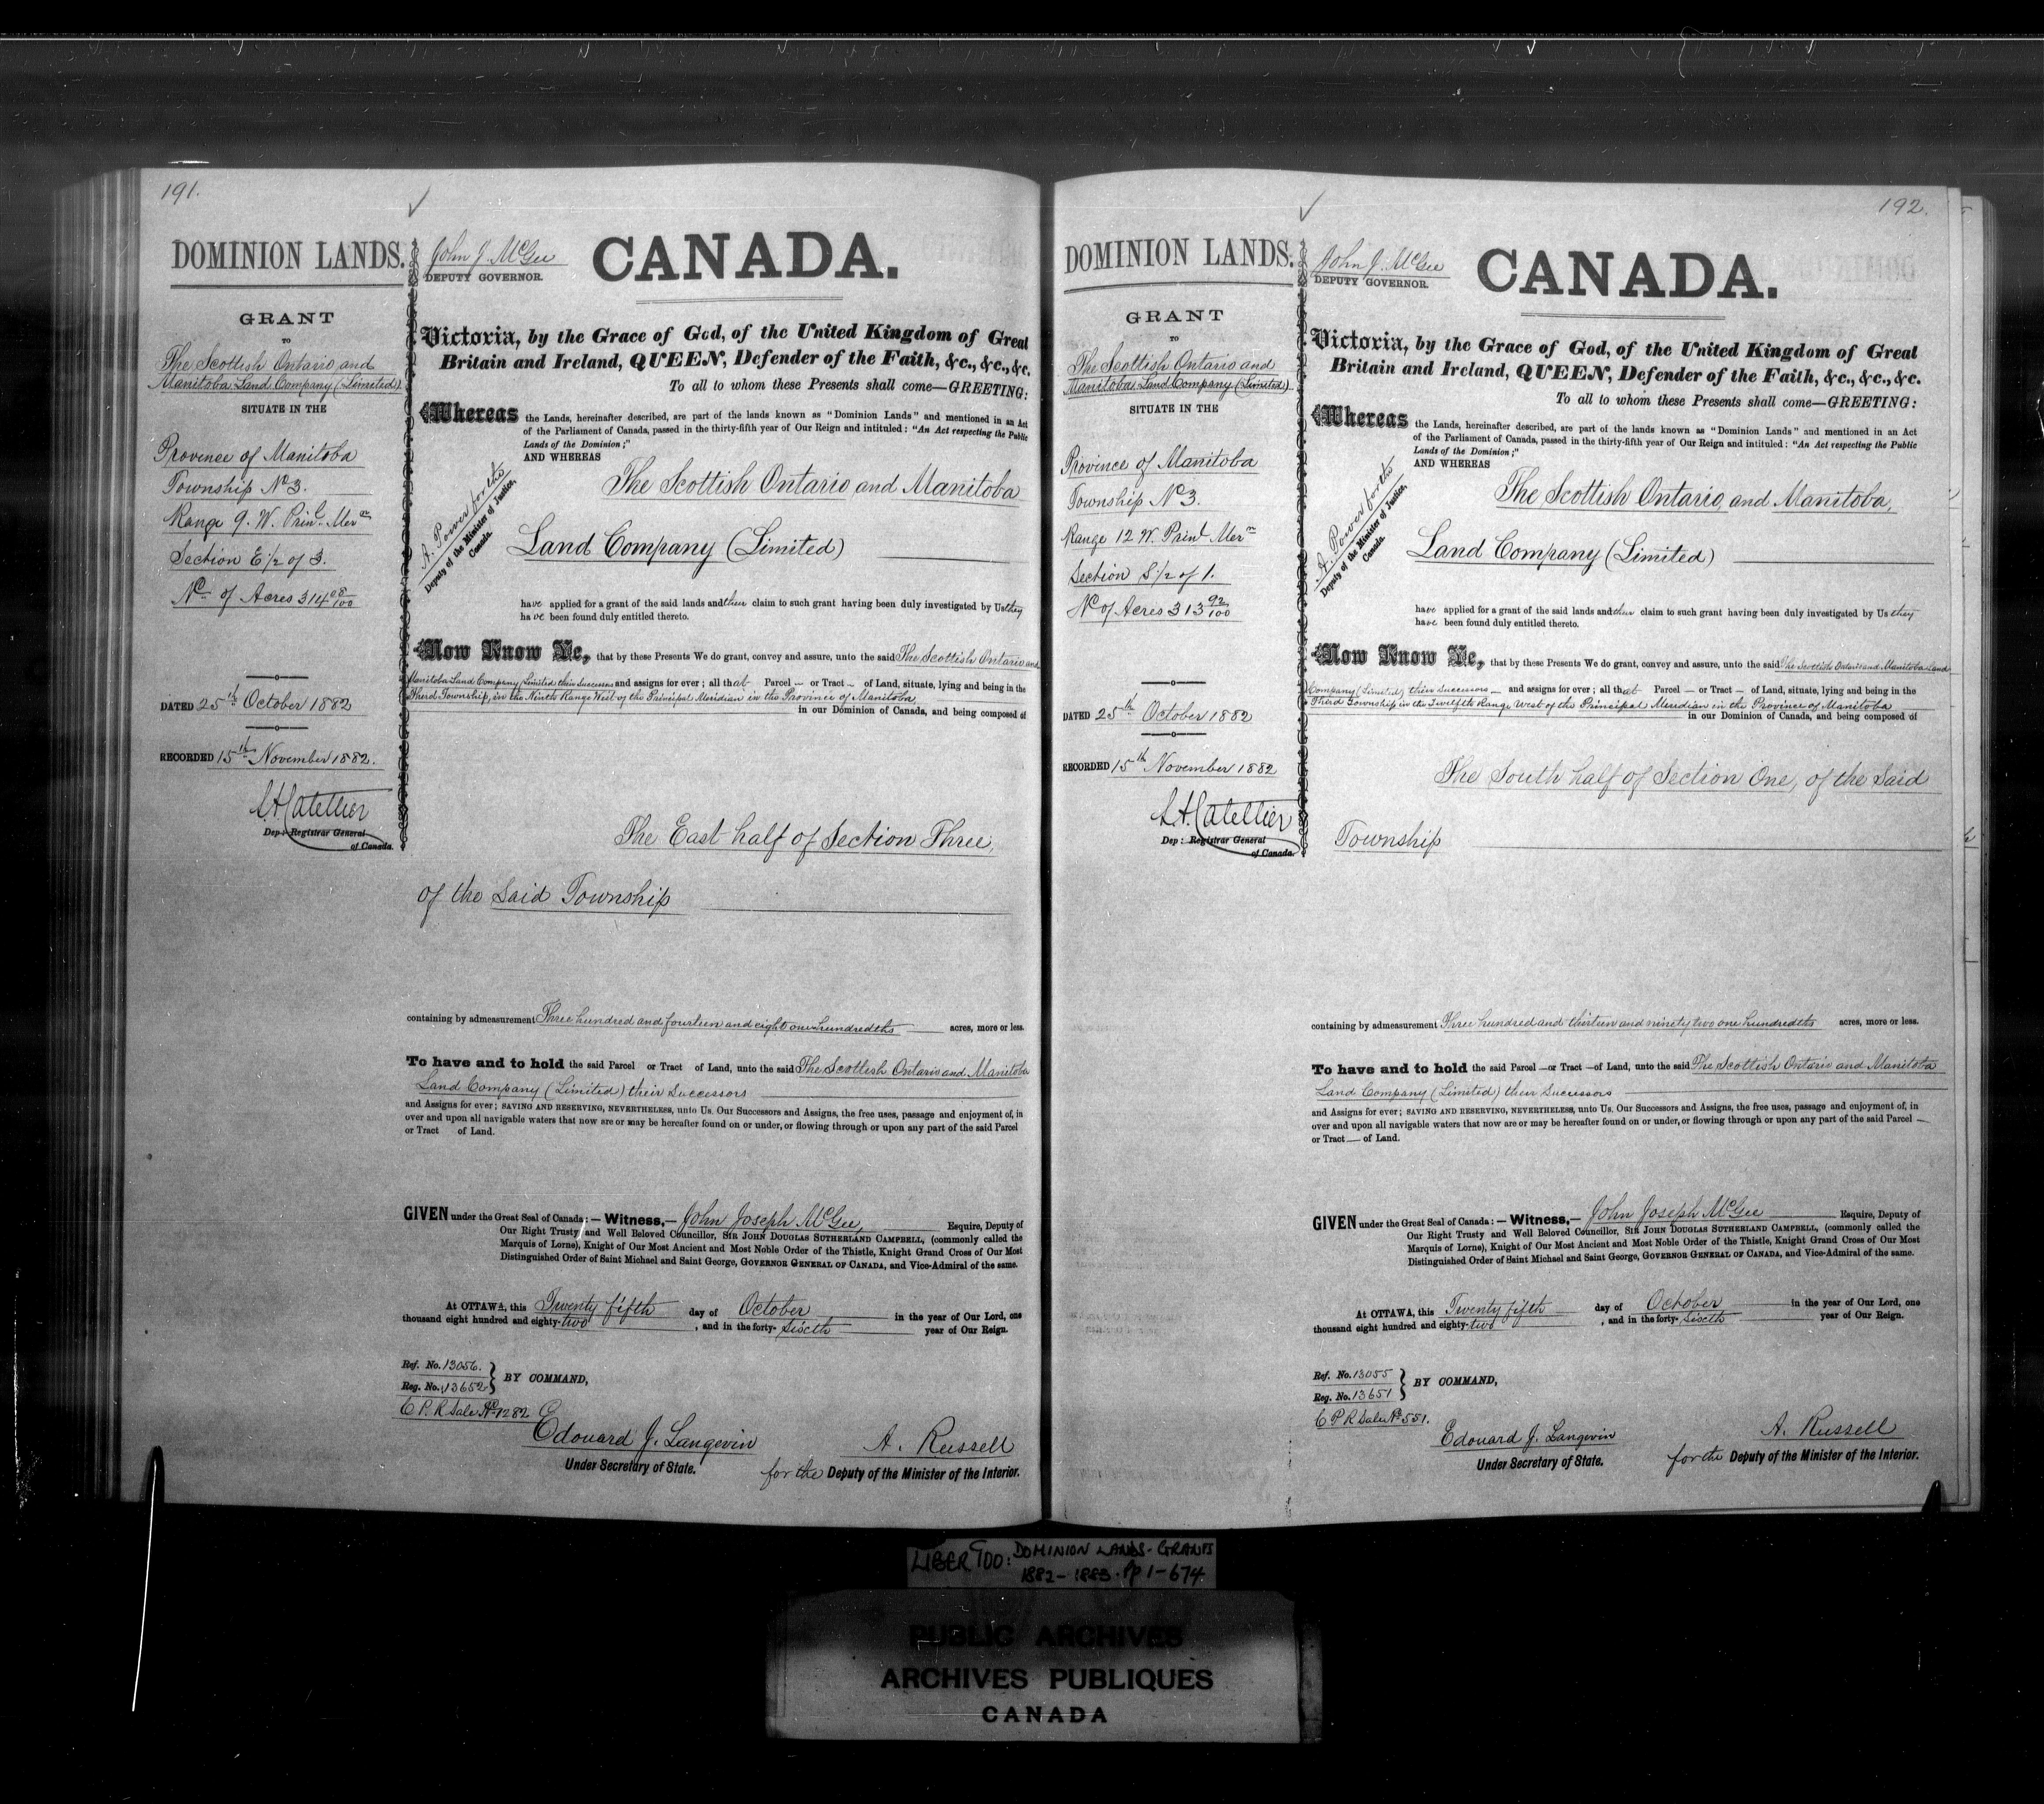 191.
DOMINION LANDS.
GRANT
TO
The Scottish Ontario and
Manitoba Land Company (Limited)
SITUATE IN THE
Provence of Manitoba
Township No 3.
Range 9. W. Prinl. Mern
Section E 1/2 of 3.
No. of Acres 314 08/100
DATED 25th October 1882
RECORDED 15th November 1882.
L.A. Catellier
Dep: Registrar General
of Canada.
John J. McGee
DEPUTY GOVERNOR.
CANADA.
Victoria, by the Grace of God, of the United Kingdom of Great
Britain and Ireland, QUEEN, Defender of the Faith, &c., &c., &c.
To all to whom these Presents shall come—GREETING:
Whereas the Lands, hereinafter described, are part of the lands known as "Dominion Lands" and mentioned in an Act
of the Parliament of Canada, passed in the thirty-fifth year of Our Reign and intituled: "An Act respecting the Public
Lands of the Dominion;"
AND WHEREAS
A. Power for the
Deputy of the Minister of Justice,
Canada.
The Scottish Ontario and Manitoba
Land Company (Limited)
have applied for a grant of the said lands and their claim to such grant having been duly investigated by Us they
have been found duly entitled thereto.
Now Know Ye, that by these Presents We do grant, convey and assure, unto the said The Scottish Ontario and
Manitoba Land Company Limited their Successors and assigns for ever; all that Parcel — or Tract — of Land, situate, lying and being in the
Third Township, in the Ninth Range West of the Principal Meridian in the Province of Manitoba
in our Dominion of Canada, and being composed of
The East half of Section Three,
of the Said Township
containing by admeasurement Three hundred and fourteen and eight one hundredths acres, more or less.
To have and to hold the said Parcel or Tract of Land, unto the said The Scottish Ontario and Manitoba
Land Company (Limited) their Successors
and Assigns for ever; SAVING AND RESERVING, NEVERTHELESS, unto Us. Our Successors and Assigns, the free uses, passage and enjoyment of, in
over and upon all navigable waters that now are or may be hereafter found on or under, or flowing through or upon any part of the said Parcel
or Tract of Land.
GIVEN under the Great Seal of Canada:— Witness,— John Joseph McGee, Esquire, Deputy of
Our Right Trusty and Well Beloved Councillor, SIR JOHN DOUGLAS SUTHERLAND CAMPBELL, (commonly called the
Marquis of Lorne), Knight of Our Most Ancient and Most Noble Order of the Thistle, Knight Grand Cross of Our Most
Distinguished Order of Saint Michael and Saint George, GOVERNOR GENERAL OF CANADA, and Vice-Admiral of the same.
At OTTAWA, this Twenty fifth day of October in the year of Our Lord, one
thousand eight hundred and eighty-two, and in the forty-sixth year of Our Reign.
Ref. No. 13056.
Reg. No. 13652
BY COMMAND,
C.P.R Sale No 1282
Edouard J. Langevin
Under Secretary of State.
A. Russell
for the Deputy of the Minister of the Interior.
192.
DOMINION LANDS.
GRANT
TO
The Scottish Ontario and
Manitoba Land Company (Limited)
SITUATE IN THE
Province of Manitoba
Township No 3.
Range 12 W. Prinl Mern
Section S 1/2 of 1.
No of Acres 313 92/100
DATED 25th October 1882
RECORDED 15th November 1882
L.A. Catellier
Dep: Registrar General
of Canada.
John J. McGee
DEPUTY GOVERNOR.
CANADA.
Victoria, by the Grace of God, of the United Kingdom of Great
Britain and Ireland, QUEEN, Defender of the Faith, &c., &c., &c.
To all to whom these Presents shall come—GREETING:
Whereas the Lands, hereinafter described, are part of the lands known as "Dominion Lands" and mentioned in an Act
of the Parliament of Canada, passed in the thirty-fifth year of Our Reign and intituled: "An Act respecting the Public
Lands of the Dominion;"
AND WHEREAS
A. Power for the
Deputy of the Minister of Justice,
Canada.
The Scottish Ontario and Manitoba,
Land Company (Limited)
have applied for a grant of the said lands and their claim to such grant having been duly investigated by Us they
have been found duly entitled thereto.
Now Know Ye, that by these Presents We do grant, convey and assure, unto the said The Scottish Ontario and Manitoba Land
Company (Limited) their Successors — and assigns for ever; all that Parcel — or Tract — of Land, situate, lying and being in the
Third Township in the Twelfth Range West of the Principal Meridian in the Province of Manitoba
in our Dominion of Canada, and being composed of
The South half of Section One, of the Said
Township
containing by admeasurement Three hundred and thirteen and ninety two one hundredths acres, more or less.
To have and to hold the said Parcel — or Tract — of Land, unto the said The Scottish Ontario and Manitoba
Land Company (Limited) their Successors
and Assigns for ever; SAVING AND RESERVING, NEVERTHELESS, unto Us. Our Successors and Assigns, the free uses, passage and enjoyment of, in
over and upon all navigable waters that now are or may be hereafter found on or under, or flowing through or upon any part of the said Parcel —
or Tract — of Land.
GIVEN under the Great Seal of Canada:— Witness,— John Joseph McGee Esquire, Deputy of
Our Right Trusty and Well Beloved Councillor, SIR JOHN DOUGLAS SUTHERLAND CAMPBELL, (commonly called the
Marquis of Lorne), Knight of Our Most Ancient and Most Noble Order of the Thistle, Knight Grand Cross of Our Most
Distinguished Order of Saint Michael and Saint George, GOVERNOR GENERAL OF CANADA, and Vice-Admiral of the same.
At OTTAWA, this Twenty fifth day of October in the year of Our Lord, one
thousand eight hundred and eighty-two, and in the forty-sixth year of Our Reign.
Ref. No. 13055
Reg. No. 13651
BY COMMAND,
C P R Sale No 551.
Edouard J. Langevin
Under Secretary of State.
A. Russell
for the Deputy of the Minister of the Interior.
LIBER 900: DOMINION LANDS-GRANTS
1882-1883. Pp 1-674
PUBLIC ARCHIVES
ARCHIVES PUBLIQUES
CANADA